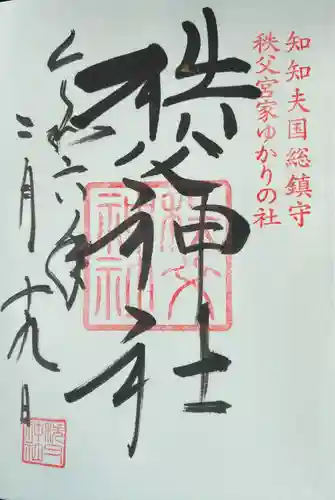 知知夫国総鎮守
秩父宮家ゆかりの社
秩父神社
令和六年
二月十九日
秩父神社